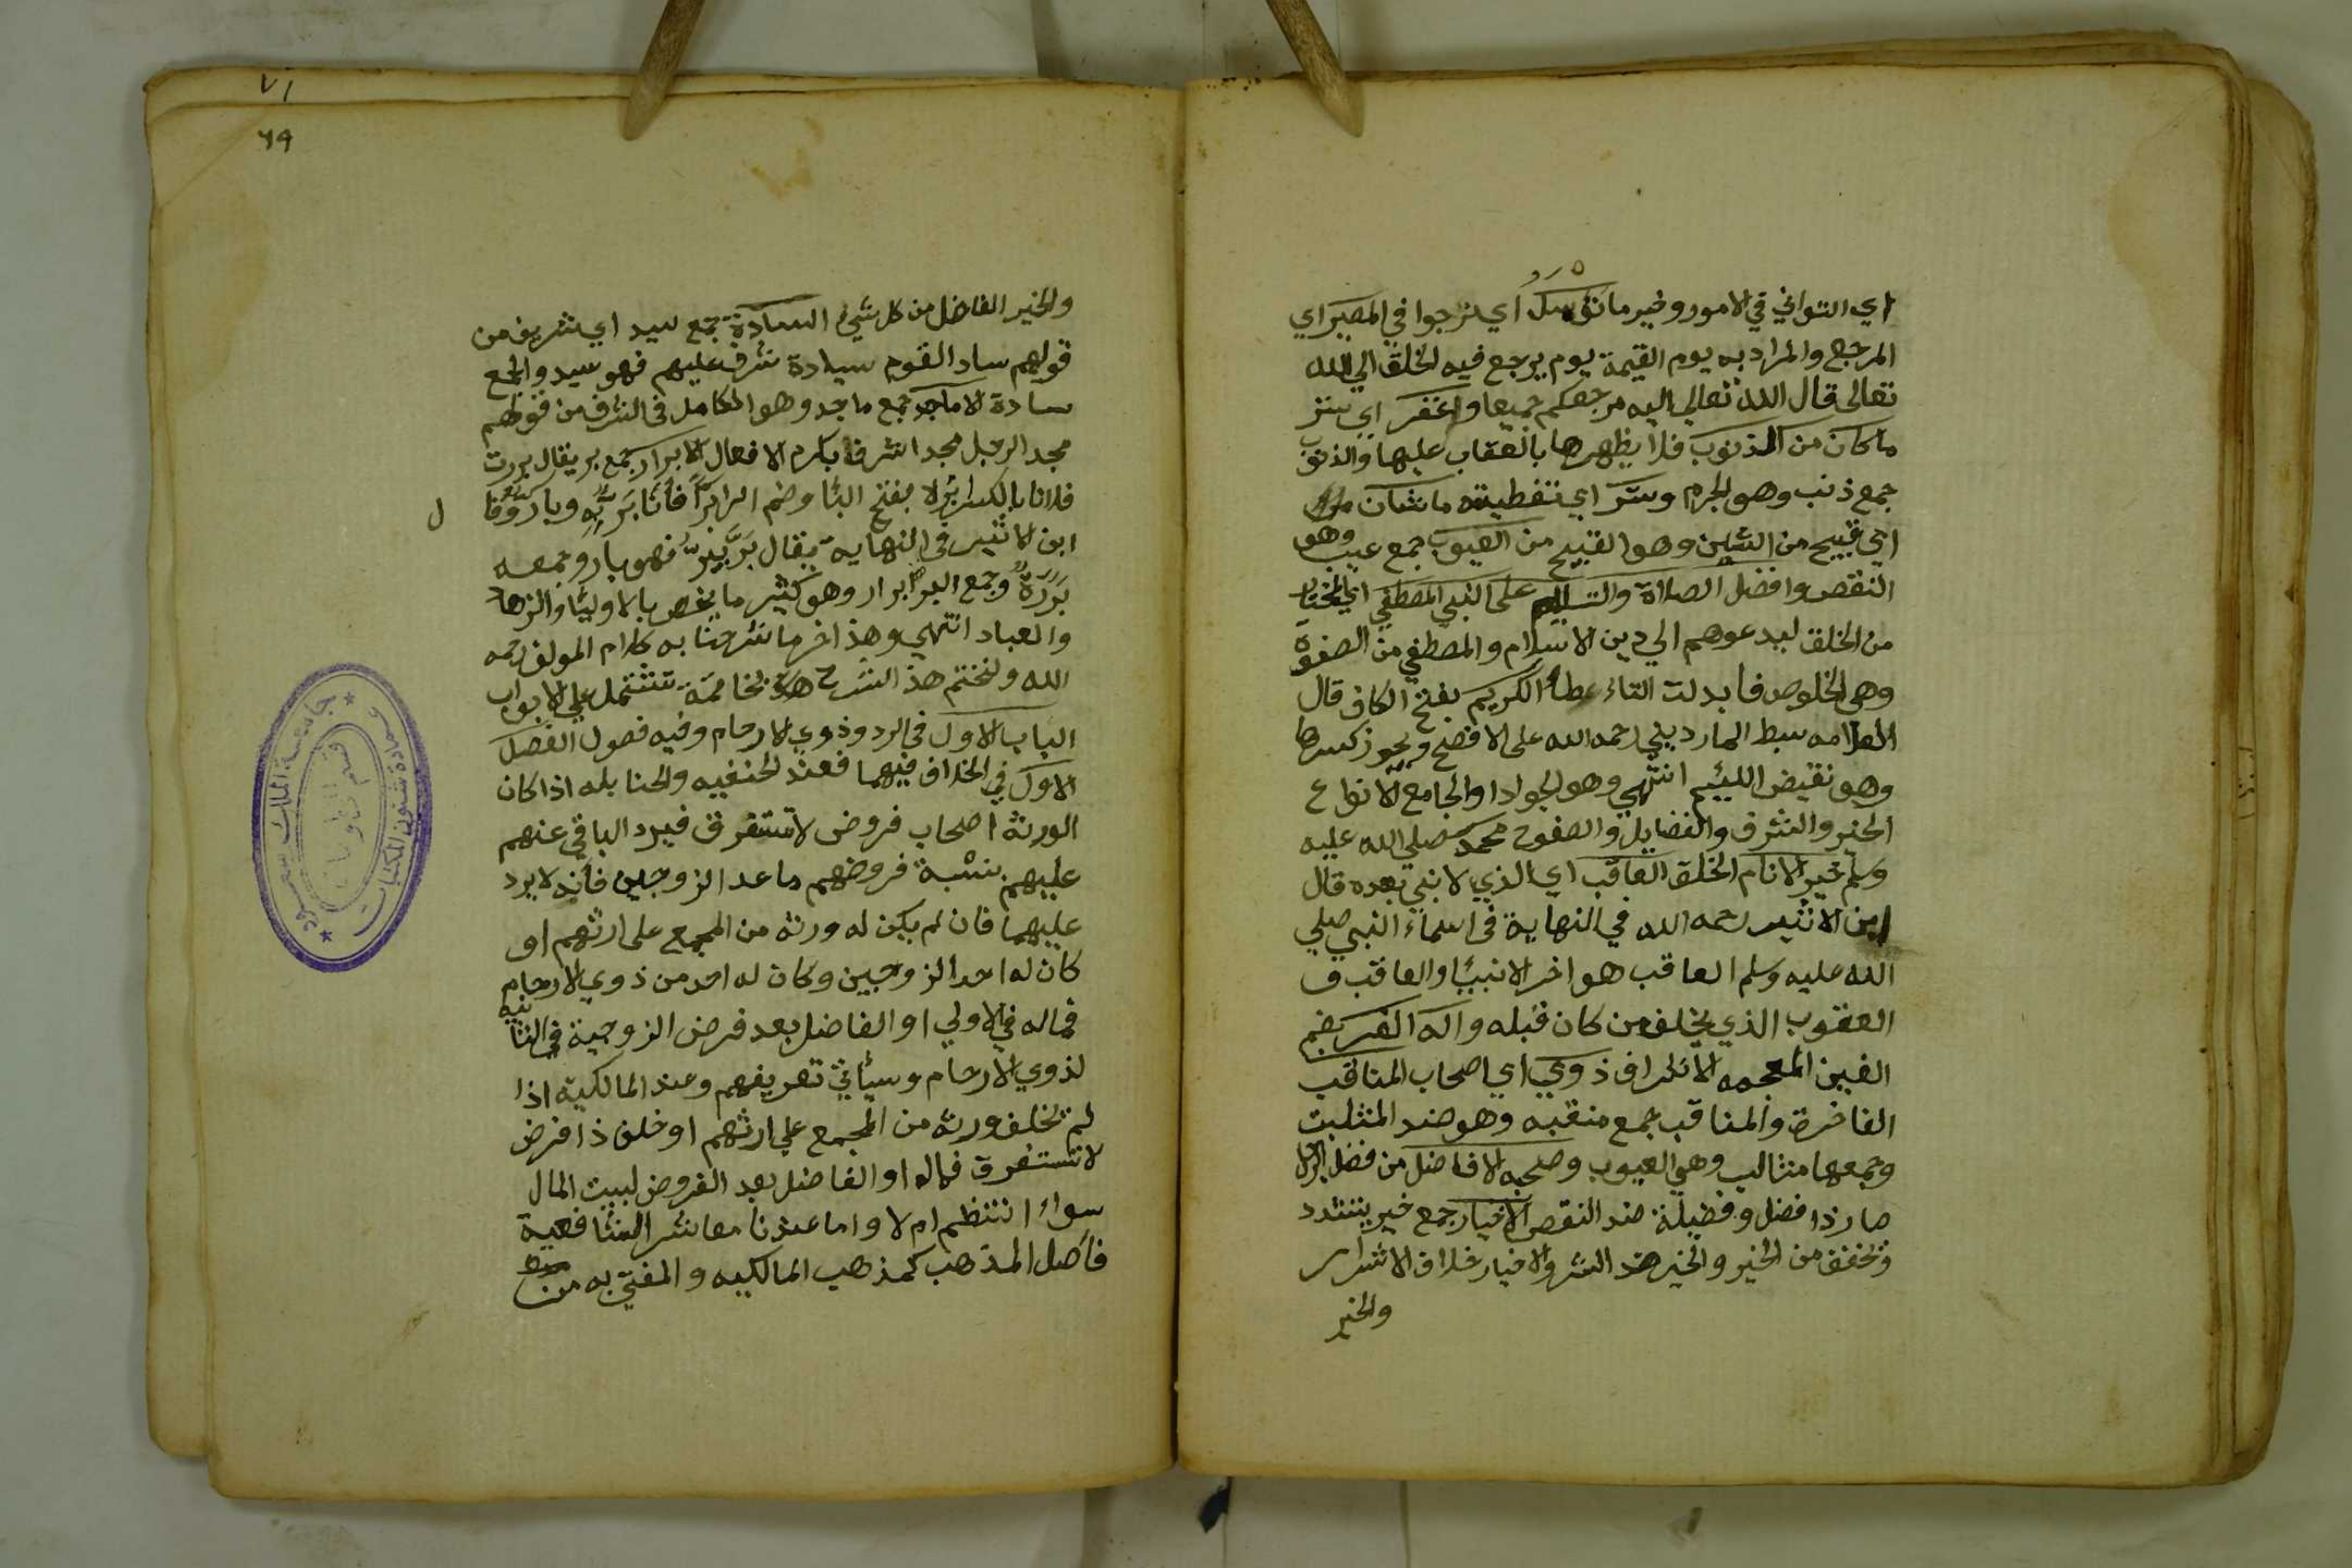 اي التواني في الامور وخير ما نؤمل اي نرجوا في المصير اي
المرجع والمراد به يوم القيمة يوم يرجع فيه الخلق الي الله
تعالى قال الله تعالى اليه مرجعكم جميعا وغفر اي ستر
ما كان من الذنوب فلا يظهرها بالعقاب عليها والذنوب
جمع ذنب وهو الجرم وستر اي تغطيته ما شان
اي قبيح من الشين وهو القبيح من العيوب جمع عيب وهو
النقص وافضل الصلاة والتسليم على النبي المصطفي اي المختار
من الخلق ليدعوهم الي دين الاسلام والمصطفي من الصفوة
وهي الخلوص فابدلت التاء طاء الكريم بفتح الكاف قال
العلامه سبط المارديني رحمه الله على الافصح ويجوز كسرها
وهو نقيض اللئيم انتهي وهو الجواد او الجامع لانواع
الخير والشرف والفضايل والصفوح محمد صلي الله عليه
وسلم خير الانام الخلق العاقب اي الذي لا نبي بعده قال
ابن الاثير رحمه الله في النهاية في اسماء النبي صلي
الله عليه وسلم العاقب هو اخر الانبيا والعاقب و
العقوب الذي يخلف من كان قبله واله الغر بضم
الغين المعجمه الاشراف ذوي اي اصحاب المناقب
الفاخرة والمناقب جمع منقبه وهو ضد المثلبت
وجمعها مثالب وهي العيوب وصحبه الافاضل من فضل الرجل
صار ذا فضل وفضيلة ضد النقص الاخيار جمع خير يشدد
ويخفف من الخير والخير ضد الشر والاخيار خلاف الاشرار
والخير
٧١
٦٩
والخير الفاضل من كل شيء السادة جمع سيد اي شريف من
قولهم ساد القوم سيادة شرف عليهم فهو سيد والجمع
سادة الاماجد جمع ماجد وهو الكامل في الشرف من قولهم
مجد الرجل مجدا شرف بكرم الافعال الابرار جمع بر يقال بررت
فلانا بالكسر ابره بفتح البا وضم الرا برا فانا بر به وبار وقا
ل
ابن الاثير في النهاية يقال بر يبر فهو بار وجمعه
بررة وجمع البر ابرار وهو كثير ما يخص بالاوليا والزهاد
والعباد انتهي وهذا اخر ما شرحنا به كلام المولف رحمه
الله ولنختم هذ الشرح بخاتمة تشتمل علي الابواب
الباب الاول في الرد وذوي الارحام وفيه فصول الفصل
الاول في الخلاف فيهما فعند الحنفيه والحنابله اذا كان
الورثة اصحاب فروض لا تستغرق فيرد الباقي عنهم
عليهم بنسبة فروضهم ما عدا الزوجين فانه لا يرد
عليهما فان لم يكن له ورثه من المجمع على ارثهم او
كان له احد الزوجين وكان له احد من ذوي الارحام
فماله في الاولي او الفاضل بعد فرض الزوجية في الثانيه
لذوي الارحام وسيأتي تعريفهم وعند المالكية اذا
لم تخلف ورثه من المجمع علي ارثهم او خلف ذا فرض
لا تستغرق فماله او الفاضل بعد الفروض لبيت المال
سواء انتظم ام لا واما عندنا معاشر الشافعية
فاصل المذهب كمذهب المالكيه والمفتي به من
جامعة الملك سعود
عمادة شئون المكتبات
قسم المخطوطات